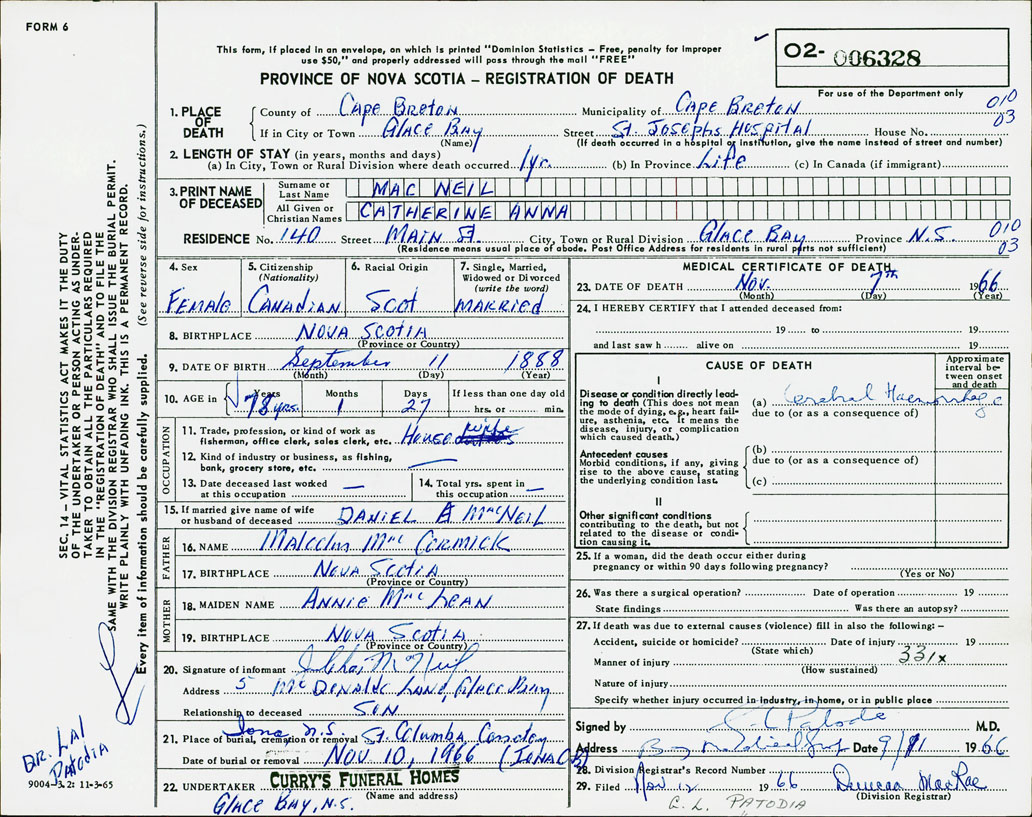 FORM 6
This form, if placed in an envelope, on which is printed "Dominion Statistics – Free, penalty for improper
use $50," and properly addressed will pass through the mail "FREE"
PROVINCE OF NOVA SCOTIA – REGISTRATION OF DEATH
02- 006328
For use of the Department only
010
03
1. PLACE OF DEATH
County of Cape Breton Municipality of Cape Breton
If in City or Town Glace Bay Street St. Josephs Hospital House No.
(Name) (If death occurred in a hospital or institution, give the name instead of street and number)
2. LENGTH OF STAY (in years, months and days)
(a) In City, Town or Rural Division where death occurred 1 yr. (b) In Province Life (c) In Canada (if immigrant)
3. PRINT NAME OF DECEASED
Surname or Last Name MAC NEIL
All Given or Christian Names CATHERINE ANNA
RESIDENCE No. 140 Street Main St. City, Town or Rural Division Glace Bay Province N.S. 010
03
(Residence means usual place of abode. Post Office Address for residents in rural parts not sufficient)
4. Sex Female
5. Citizenship (Nationality) Canadian
6. Racial Origin Scot
7. Single, Married, Widowed or Divorced (write the word) Married
8. BIRTHPLACE Nova Scotia
(Province or Country)
9. DATE OF BIRTH September 11 1888
(Month) (Day) (Year)
10. AGE in Years Months Days If less than one day old
78 yrs. 1 27 hrs. or min.
OCCUPATION
11. Trade, profession, or kind of work as
fisherman, office clerk, sales clerk, etc. House wife
12. Kind of industry or business, as fishing,
bank, grocery store, etc. —
13. Date deceased last worked
at this occupation —
14. Total yrs. spent in
this occupation —
15. If married give name of wife
or husband of deceased Daniel A MacNeil
FATHER
16. NAME Malcolm Mac Cormick
17. BIRTHPLACE Nova Scotia
(Province or Country)
MOTHER
18. MAIDEN NAME Annie MacLean
19. BIRTHPLACE Nova Scotia
(Province or Country)
20. Signature of informant
Address 5 McDonalds Lane, Glace Bay
Relationship to deceased Son
21. Place of burial, cremation or removal Iona N.S. St. Columba Cemetery
Date of burial or removal Nov 10, 1966 (Iona CB)
22. UNDERTAKER CURRY'S FUNERAL HOMES
(Name and address)
Glace Bay, N.S.
MEDICAL CERTIFICATE OF DEATH
23. DATE OF DEATH Nov. 7th 1966
(Month) (Day) (Year)
24. I HEREBY CERTIFY that I attended deceased from:
19 to 19
and last saw h alive on 19
CAUSE OF DEATH
Approximate interval between onset and death
I
Disease or condition directly leading to death (This does not mean the mode of dying, e.g., heart failure, asthenia, etc. It means the disease, injury, or complication which caused death.)
(a) Cerebral Haemorrhage
due to (or as a consequence of)
Antecedent causes
Morbid conditions, if any, giving rise to the above cause, stating the underlying condition last.
(b)
due to (or as a consequence of)
(c)
II
Other significant conditions
contributing to the death, but not related to the disease or condition causing it.
25. If a woman, did the death occur either during
pregnancy or within 90 days following pregnancy?
(Yes or No)
26. Was there a surgical operation? Date of operation 19
State findings Was there an autopsy?
27. If death was due to external causes (violence) fill in also the following:–
Accident, suicide or homicide? Date of injury 19
(State which)
331x
Manner of injury
(How sustained)
Nature of injury
Specify whether injury occurred in industry, in home, or in public place
Signed by C L Patodia M.D.
Address Date 9/11 1966
28. Division Registrar's Record Number
29. Filed Nov 12 1966 Duncan MacRae
(Division Registrar)
C. L. PATODIA
SEC. 14 – VITAL STATISTICS ACT MAKES IT THE DUTY
OF THE UNDERTAKER OR PERSON ACTING AS UNDER-
TAKER TO OBTAIN ALL THE PARTICULARS REQUIRED
IN THE "REGISTRATION OF DEATH" AND TO FILE THE
SAME WITH THE DIVISION REGISTRAR WHO SHALL ISSUE THE BURIAL PERMIT.
WRITE PLAINLY WITH UNFADING INK. THIS IS A PERMANENT RECORD.
Every item of information should be carefully supplied. (See reverse side for instructions.)
DR. LAL
PATODIA
9004-3.2: 11-3-65